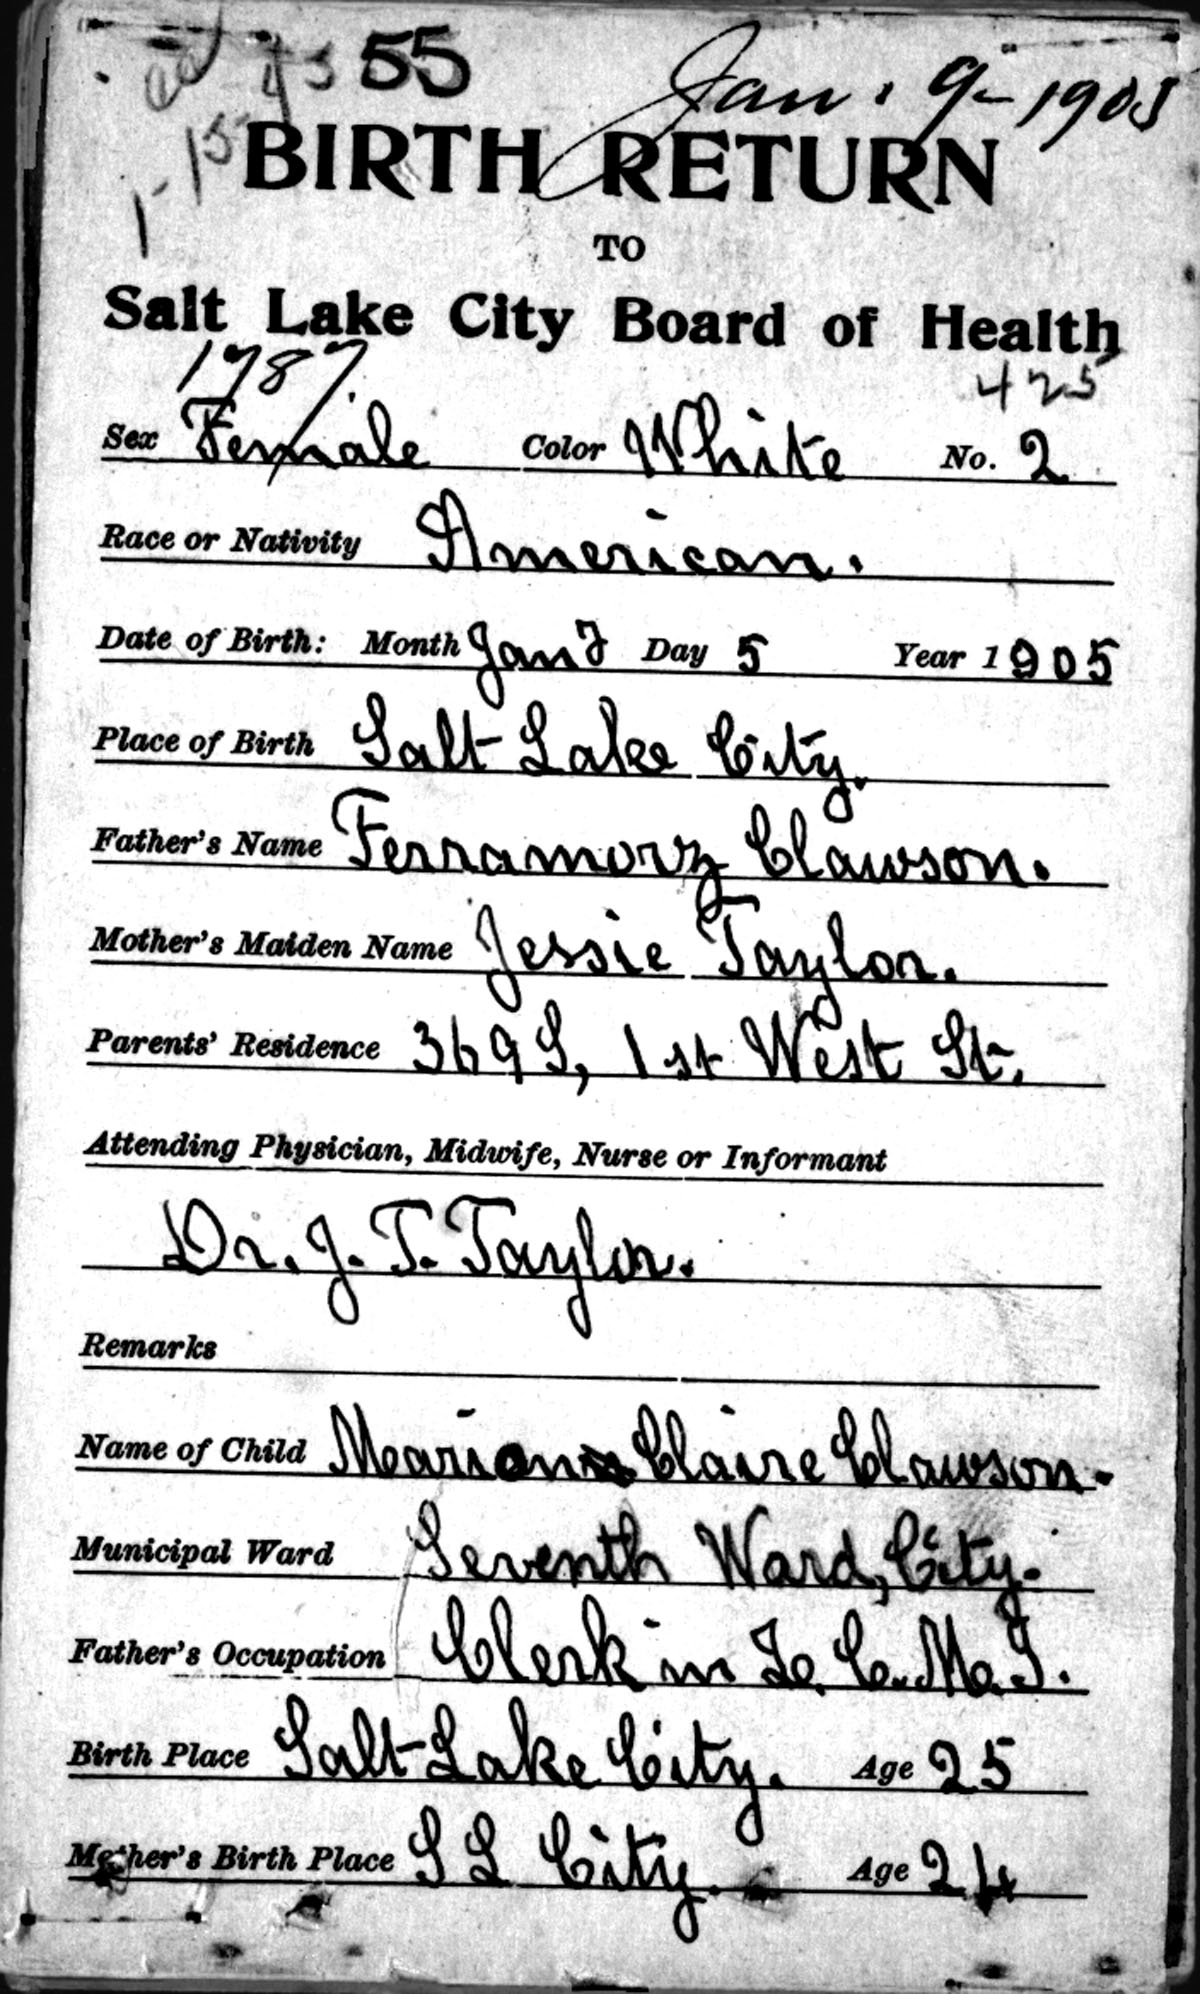 55 Jan. 9-1905
1-15
BIRTH RETURN
TO
Salt Lake City Board of Health
1787. 425
Sex Female Color White No. 2
Race or Nativity American.
Date of Birth: Month Jany Day 5 Year 1905
Place of Birth Salt Lake City.
Father's Name Ferramorz Clawson.
Mother's Maiden Name Jessie Taylor.
Parents' Residence 369 S, 1st West St.
Attending Physician, Midwife, Nurse or Informant
Dr. J. T. Taylor.
Remarks
Name of Child Marion Claire Clawson.
Municipal Ward Seventh Ward, City.
Father's Occupation Clerk in Z. C. M. I.
Birth Place Salt Lake City. Age 25
Mother's Birth Place S L City. Age 24